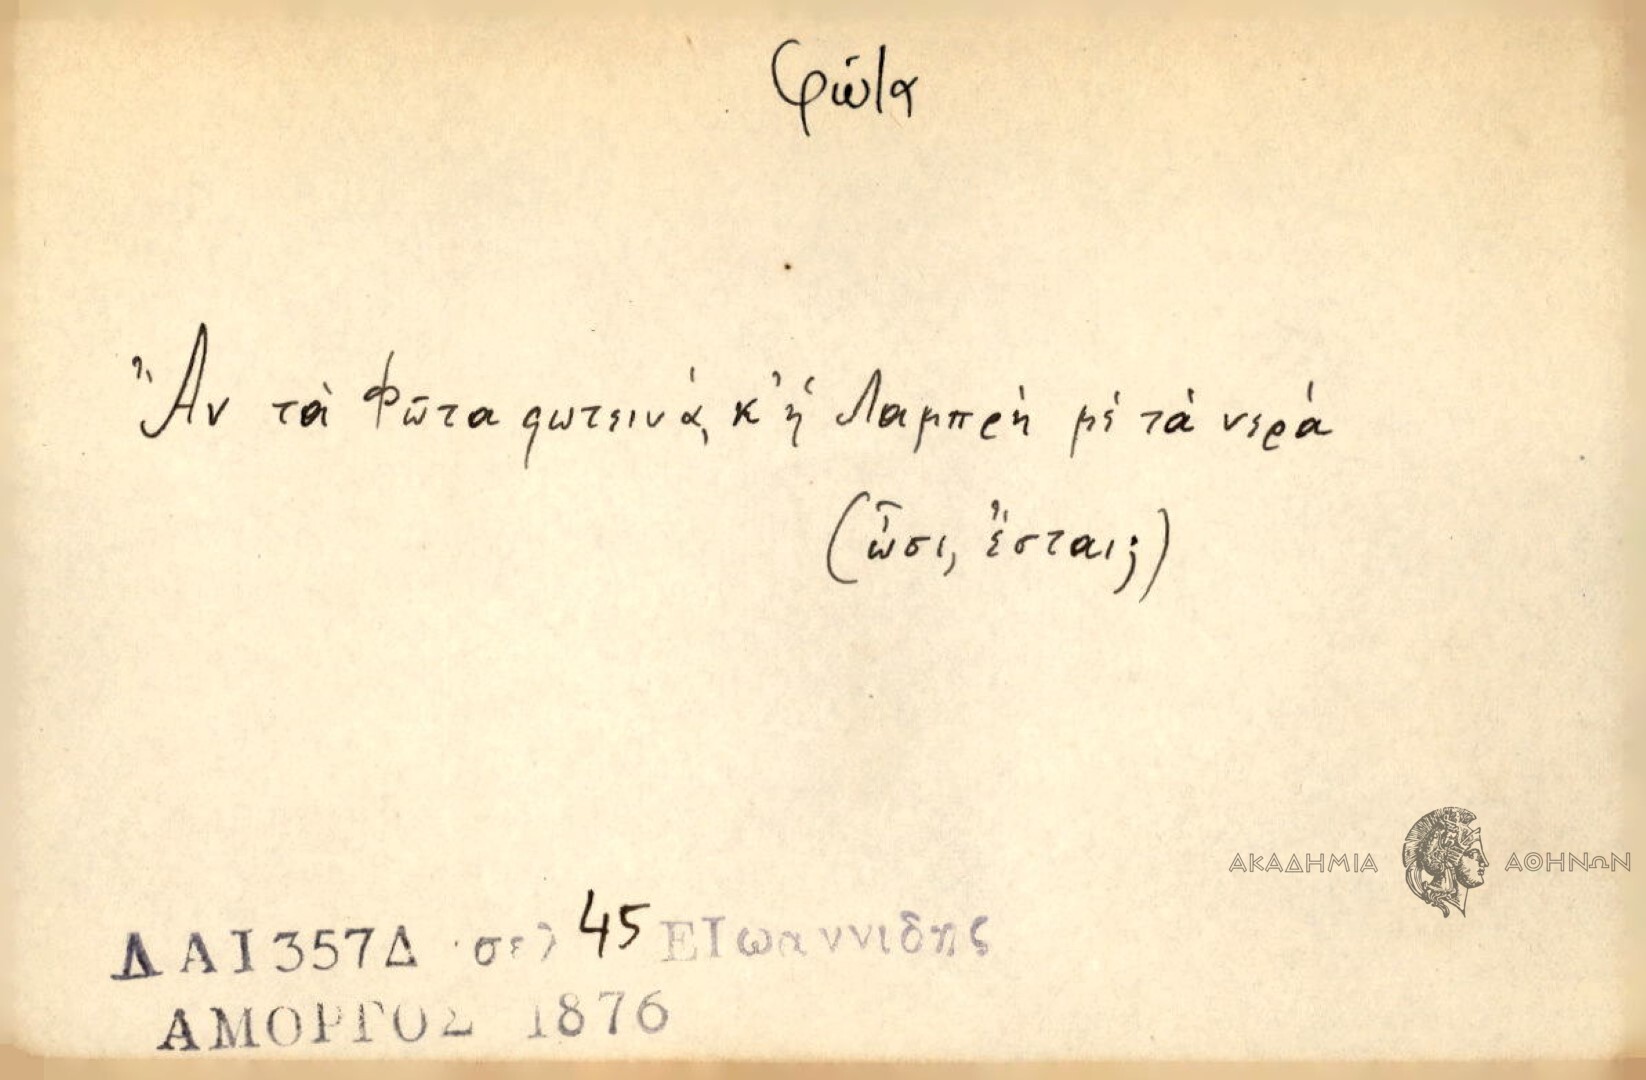 Φῶτα
Ἂν τὰ Φῶτα φωτεινά, κ' ἡ Λαμπρὴ μὲ τὰ νερά
(ὦσι, ἔσται;)
ΑΚΑΔΗΜΙΑ ΑΘΗΝΩΝ
ΔΑΙ357Δ σελ 45 ΕΙωαννιδης
ΑΜΟΡΓΟΣ 1876